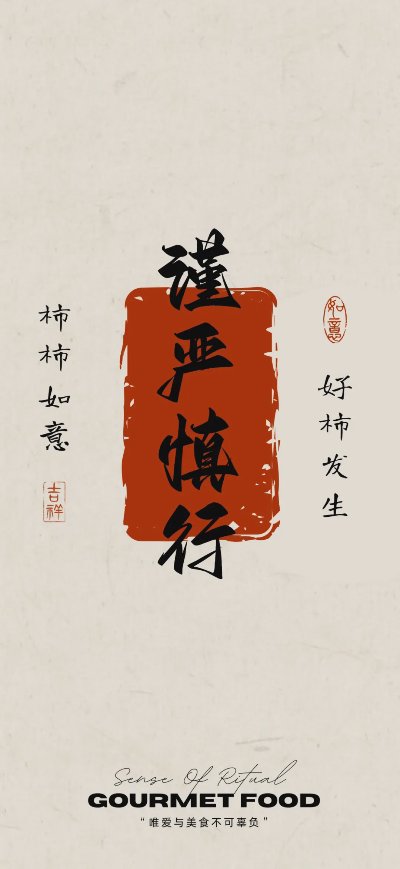 谨严慎行
柿柿如意
吉祥
如意
好柿发生
Sense Of Ritual
GOURMET FOOD
“唯爱与美食不可辜负”